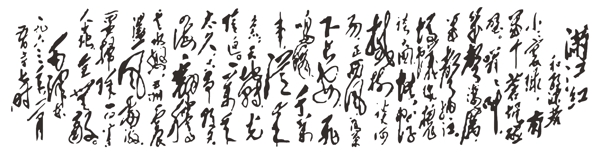 滿江红
和郭沫若
小小寰球,有
几个苍蝇碰
壁。嗡嗡叫,
几声凄厉,
几声抽泣。
蚂蚁缘槐
夸大国,蚍蜉
撼树谈何
易。正西风落葉
下长安,飞
鸣镝。
从来急。
天地轉,光
陰迫。一万年
太久,只争朝夕。四
海翻腾
云水怒,五洲震
荡风雷激。
要扫除一切害
人虫,全无敌。
毛泽东
一九六三年一月